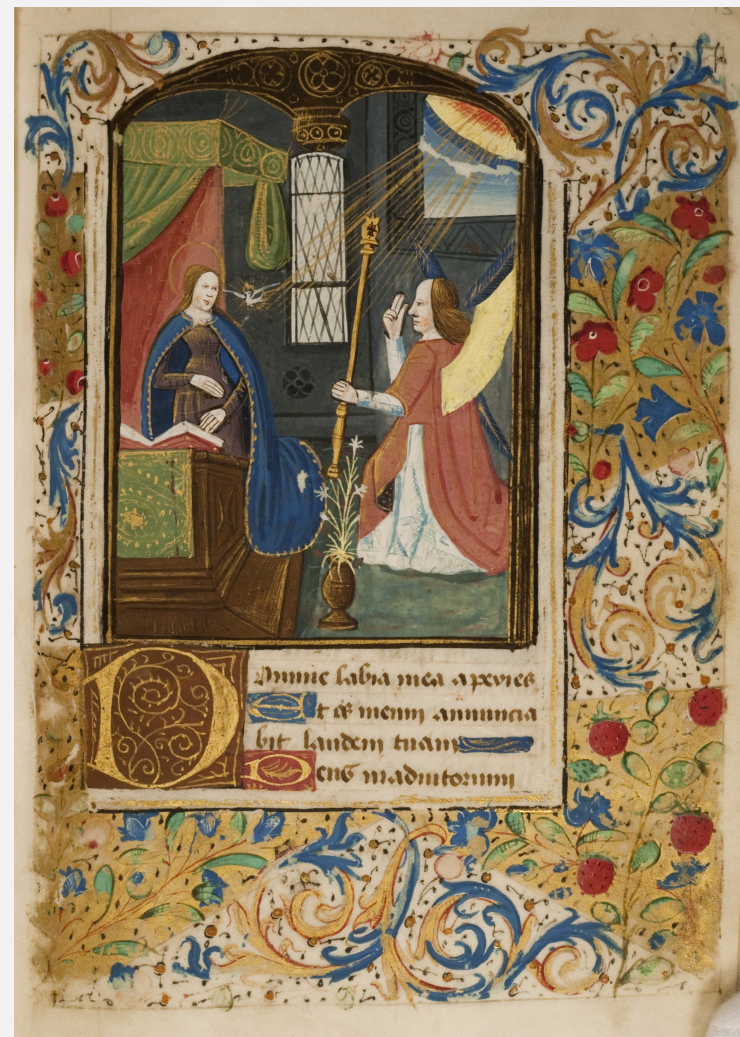 Domine labia mea aperies
Et os meum annuncia
bit laudem tuam
Deus in adiutorium